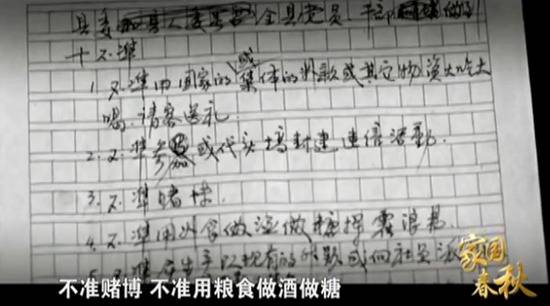 县委 全县党员、干部 做到
十不准
1. 不准用国家的或集体的粮款或其它物资大吃大
喝，请客送礼。
2. 不准参加或代头搞封建迷信活动。
3. 不准赌博。
4. 不准用粮食做酒做糖，挥霍浪费。
5. 不准 生产队现有的粮款或向社员派
家国
春秋
不准赌博 不准用粮食做酒做糖